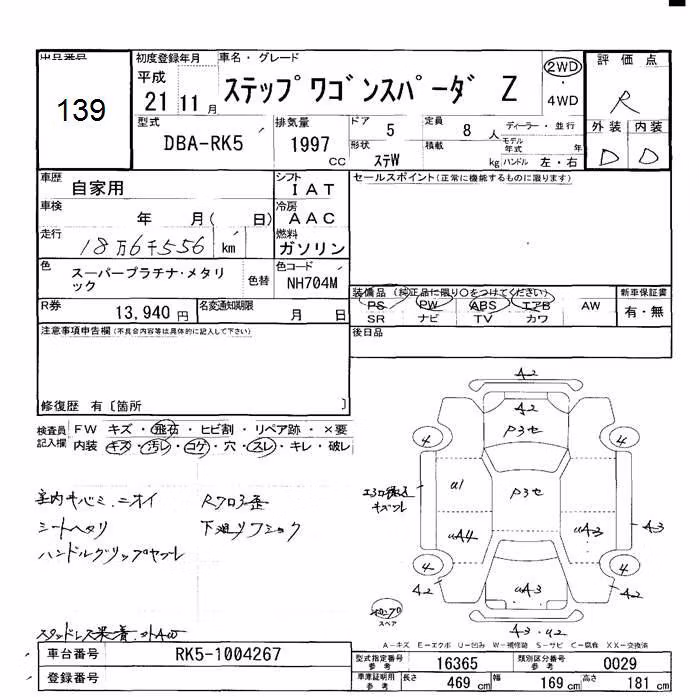 出品番号
139
初度登録年月
平成
21 11 月
車名・グレード
ステップワゴンスパーダ Z
2WD
・
4WD
評 価 点
R
外 装 内 装
D D
型式
DBA-RK5
排気量
1997
cc
ドア
5
形状
ステW
定員
8 人
積載
kg
ディーラー・並行
モデル年式 年
ハンドル 左・右
車歴
自家用
シフト
I A T
車検
年 月( 日)
冷房
A A C
走行
18万6千556 km
燃料
ガソリン
色
スーパープラチナ・メタリック
色替
色コード
NH704M
R券
13,940 円
名変通知期限
月 日
セールスポイント(正常に機能するものに限ります)
装備品 (純正品に限り○をつけてください)
PS PW ABS エアB AW
SR ナビ TV カワ
新車保証書
有・無
後日品
注意事項申告欄(不具合内容等は具体的に記入して下さい)
修復歴 有〔箇所 〕
検査員記入欄
FW キズ・飛石・ヒビ割・リペア跡・×要
内装 キズ・汚レ・コゲ・穴・スレ・キレ・破レ
シートヘタリ
ハンドルグリップヤブレ
スペア
A2
A2
P3セ
P3セ
4
4
4
4
a1
uA4
uA3
A3
uA3
A3・U2
A-キズ E-エクボ U-凹み W-補修跡 S-サビ C-腐食 XX-交換済
車台番号
RK5-1004267
登録番号
型式指定番号
参 考
16365
類別区分番号
参 考
0029
車庫証明用
参 考
長さ 469 cm 幅 169 cm 高さ 181 cm